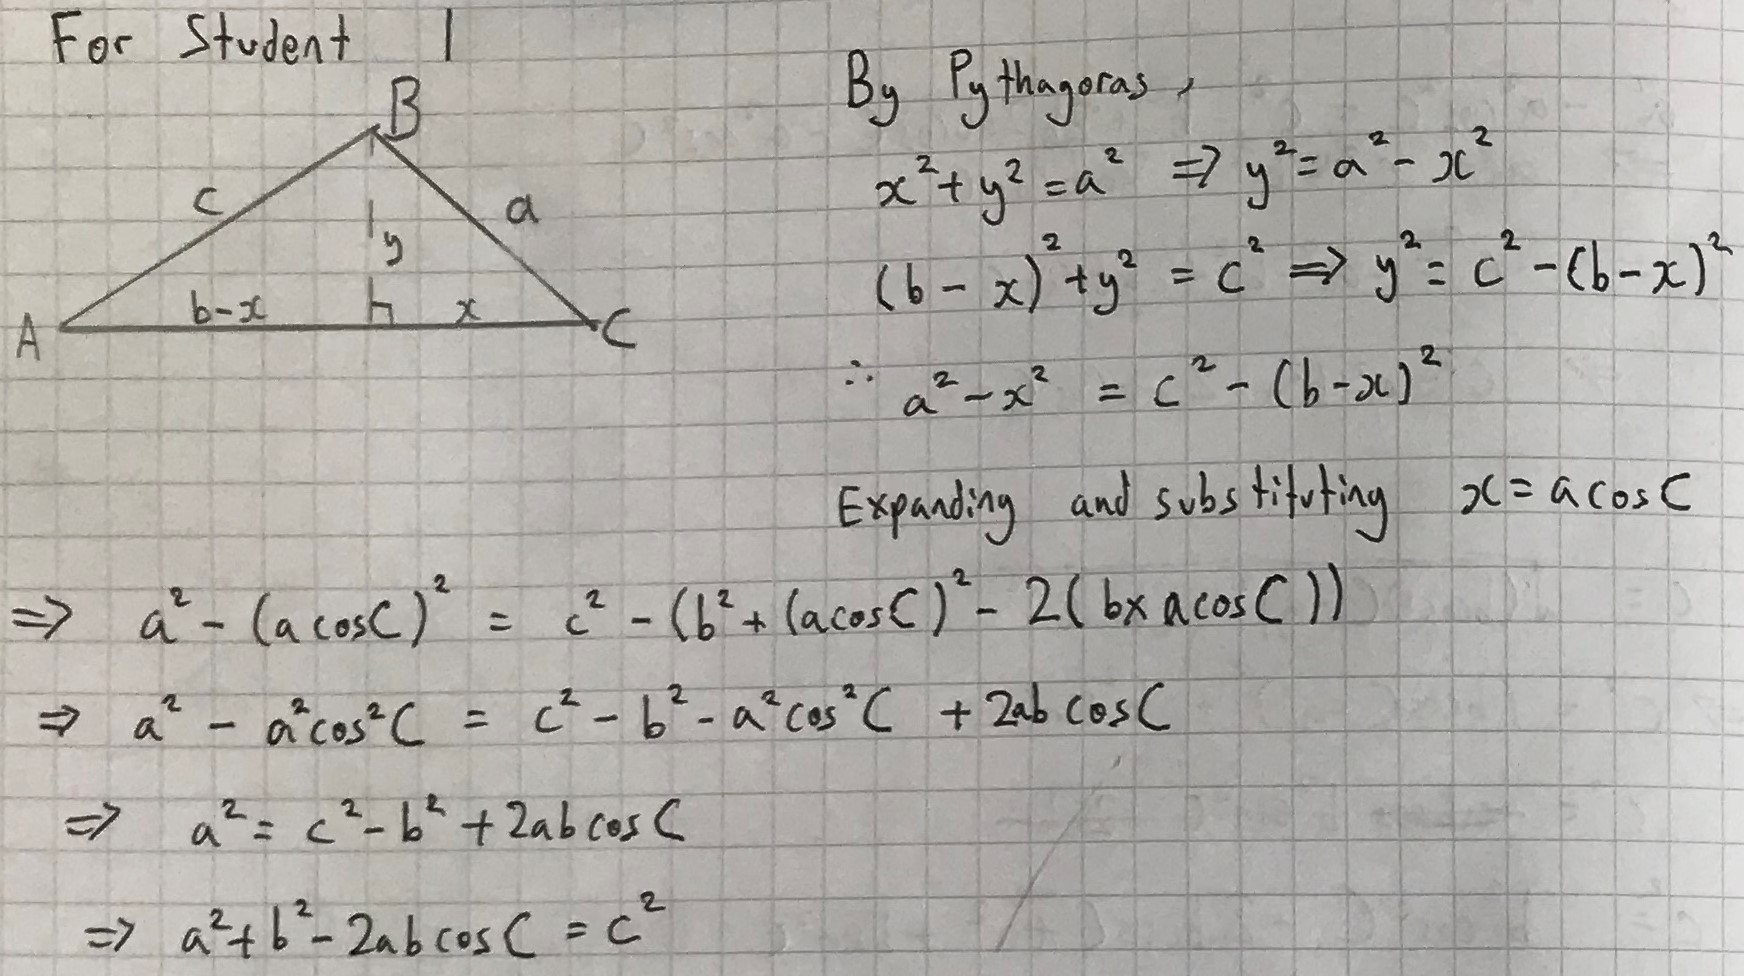 For Student 1
B
c
a
y
b-x
x
A
C
By Pythagoras,
x²+y²=a² ⇒ y²=a²-x²
(b-x)²+y² = c² ⇒ y²= c²-(b-x)²
∴ a²-x² = c²-(b-x)²
Expanding and substituting x=acosC
⇒ a²-(acosC)² = c²-(b²+(acosC)²-2(b×acosC))
⇒ a² - a²cos²C = c²-b²-a²cos²C + 2abcosC
⇒ a²= c²-b²+2abcosC
⇒ a²+b²-2abcosC = c²